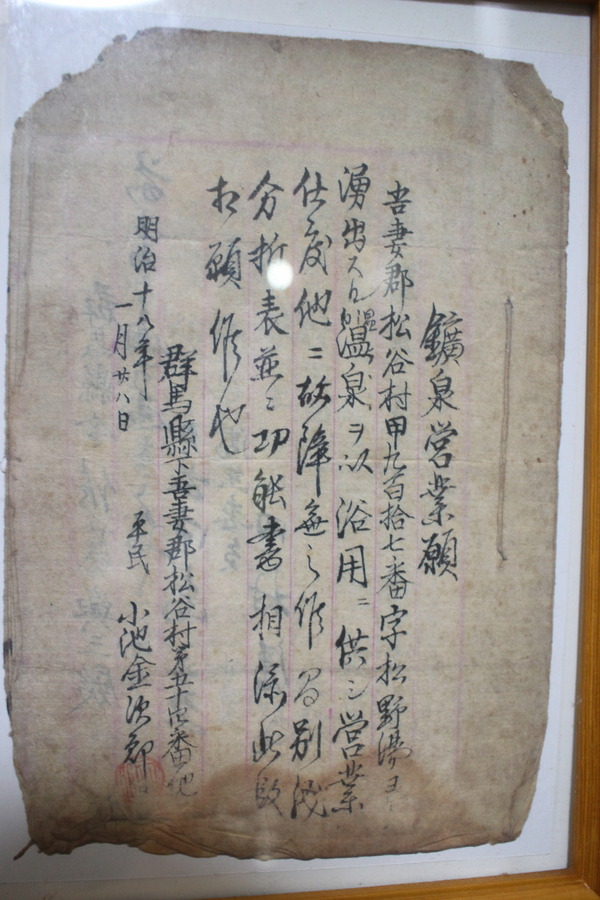 鑛泉営業願
吾妻郡松谷村甲九百拾七番字松野湯ヨリ
湧出スル温泉ヲ以浴用ニ供シ営業
仕度他ニ故障無之候間別紙
分析表並ニ功能書相添此段
相願候也
群馬縣下吾妻郡松谷村第五十四番地
明治十八年 平民 小池金次郎
一月廿八日